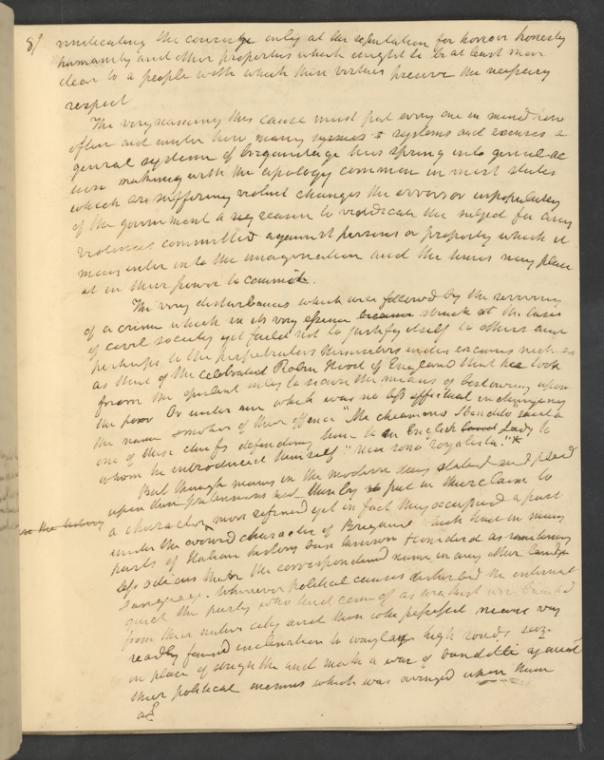 8/ vindicating the courage only at the reputation for honour honesty
humanity and other properties which ought to be at least more
dear to a people with which these virtues preserve the necessary
respect
The very naming this cause must put every one in mind how
often and under how many names & systems and excuses a
general system of brigandage has sprung into general ac
tion making with the apology common in most states
which are suffering violent changes the errors or unpopularity
of the government a reason to vindicate the subject for any
violences committed against persons or property which it
may enter into the imagination and the times may place
it in their power to commit.
The very disturbances which are followed by the
of a crime which in its very struck at the basis
of civil society yet failed not to justify itself to others and
perhaps to the perpetrators themselves under excuses such as
as that of the celebrated Robin Hood of England that he took
from the opulent only to secure the means of bestowing upon
the poor Or under one which was no less effectual in changing
the name of their offence "Me chiamano Bandito said a
one of these chiefs defending him to an English Lady to
whom he introduced himself "ma sono royalista."*
But though many in the modern day stated and pled
upon these pretensions and thereby put in their claim to
a character more refined yet in fact they occupied a part
under the avowed character of Brigand which had in many
parts of Italian history been considered as
less odious than the correspondent name in any other
Language. Wherever political causes disturbed the internal
quiet the party who had come of as weakest were banished
from their native city and those who possessed
readily found inclination to waylay high roads seize
on place of strength and make a war of banditti against
their political enemies which was avenged upon them
as